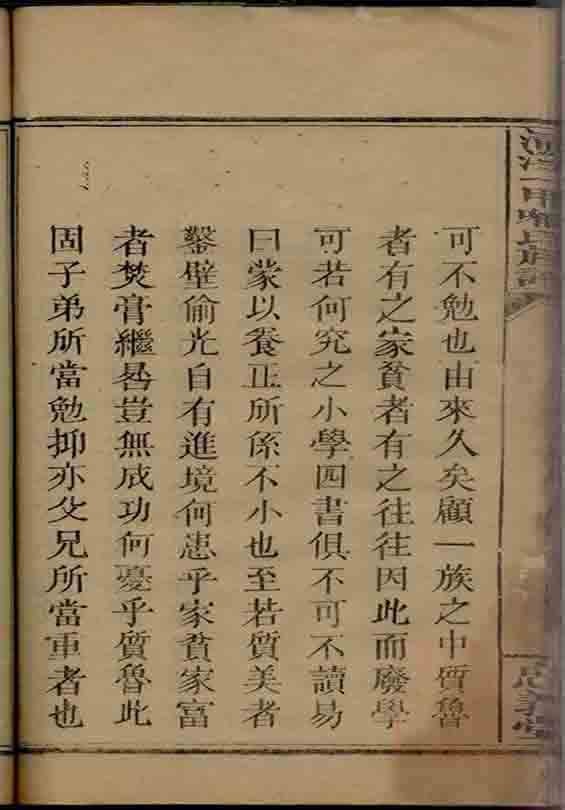 可不勉也由來久矣顧一族之中質魯
者有之家貧者有之往往因此而廢學
可若何究之小學四書俱不可不讀易
曰蒙以養正所係不小也至若質美者
鑿壁偷光自有進境何患乎家貧家富
者焚膏繼晷豈無成功何憂乎質魯此
固子弟所當勉抑亦父兄所當重者也